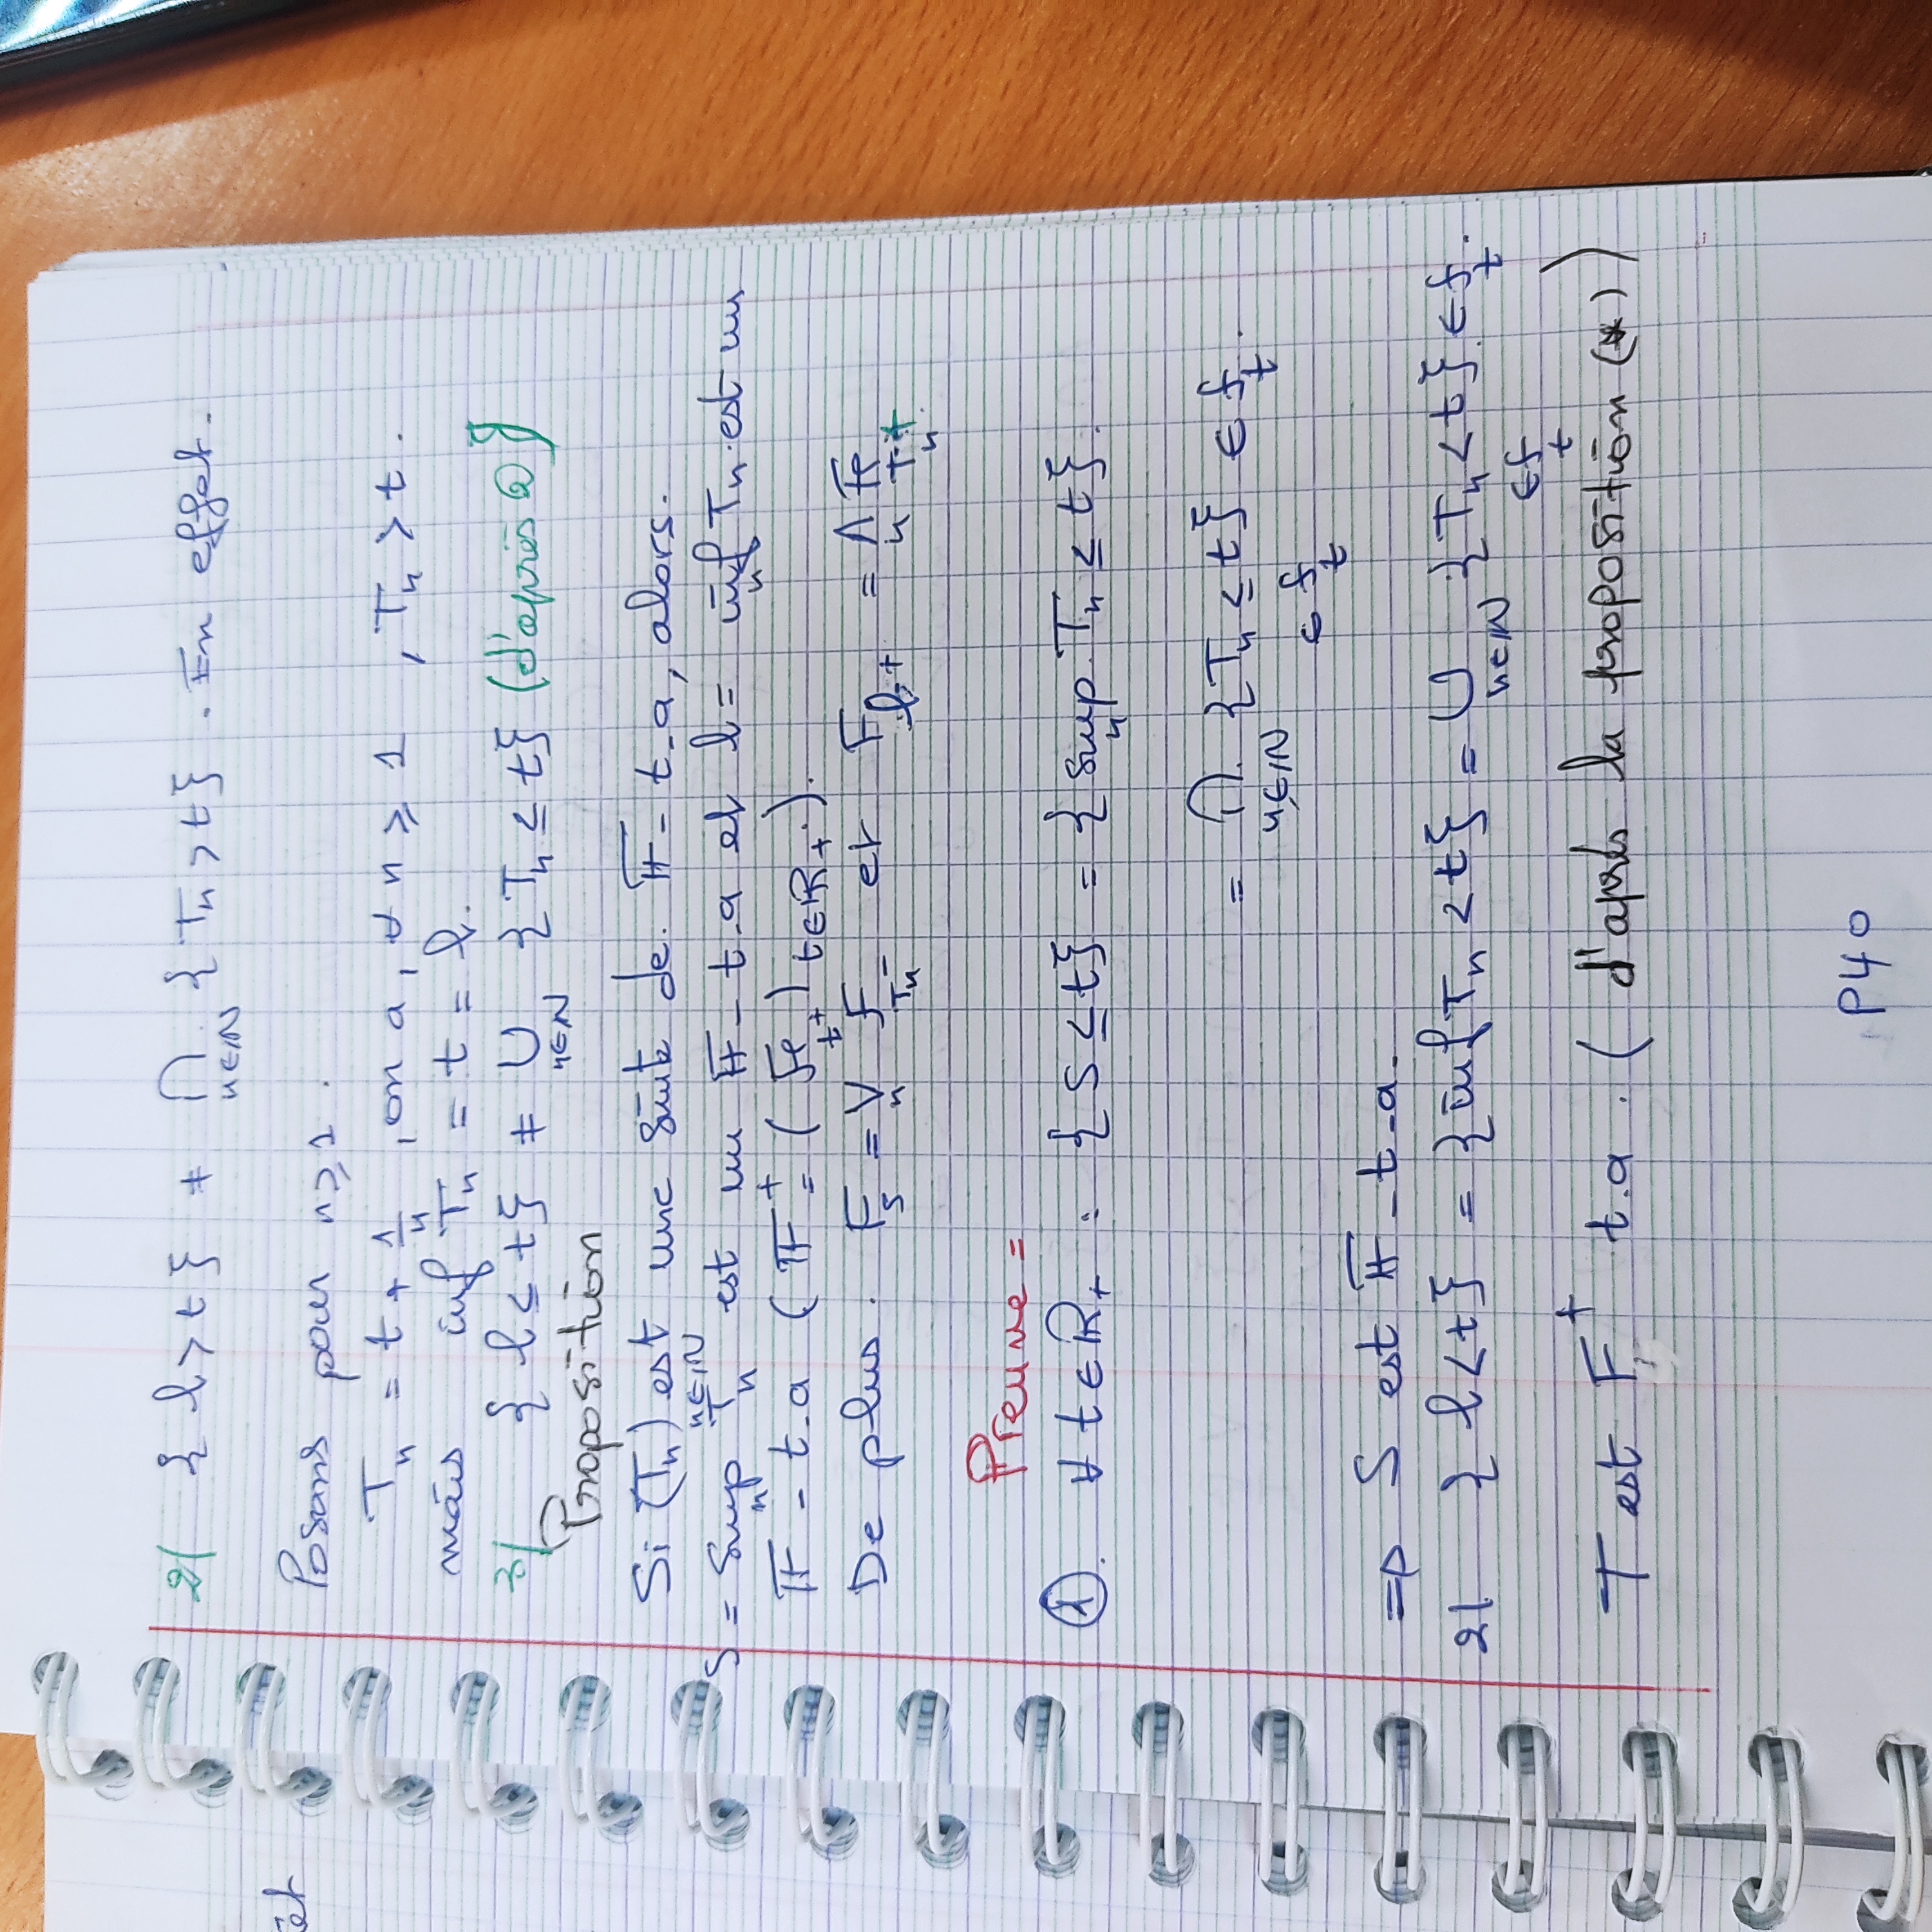 et
2/ { l > t } ≠ ⋂ n∈ℕ { Tn > t } . En effet.
Posons pour n ⩾ 1 .
Tn = t + 1/n , on a, ∀ n ⩾ 1 , Tn > t .
mais inf Tn = t = l.
3/ { l ≤ t } ≠ ⋃ n∈ℕ { Tn ≤ t } (d'après 2)
Proposition
Si (Tn) n∈ℕ est une suite de 𝔽 - t-a, alors.
S = Sup n Tn est un 𝔽 - t-a et l = inf n Tn est un
𝔽 - t-a ( 𝔽⁺ = ( Ft+ ) t∈ℝ+ ).
De plus . Fs = ⋁ n F Tn- et F l+ = ⋀ n F Tn+
Preuve =
① . ∀ t ∈ ℝ+ : { S ≤ t } = { sup n Tn ≤ t }.
= ⋂ n∈ℕ { Tn ≤ t } ∈ ft .
∈ ft
=> S est 𝔽 - t-a -
2/ { l < t } = { inf Tn < t } = ⋃ n∈ℕ { Tn < t } ∈ ft .
∈ ft
T est F⁺ t.a . ( d'après la proposition (*) )
P40